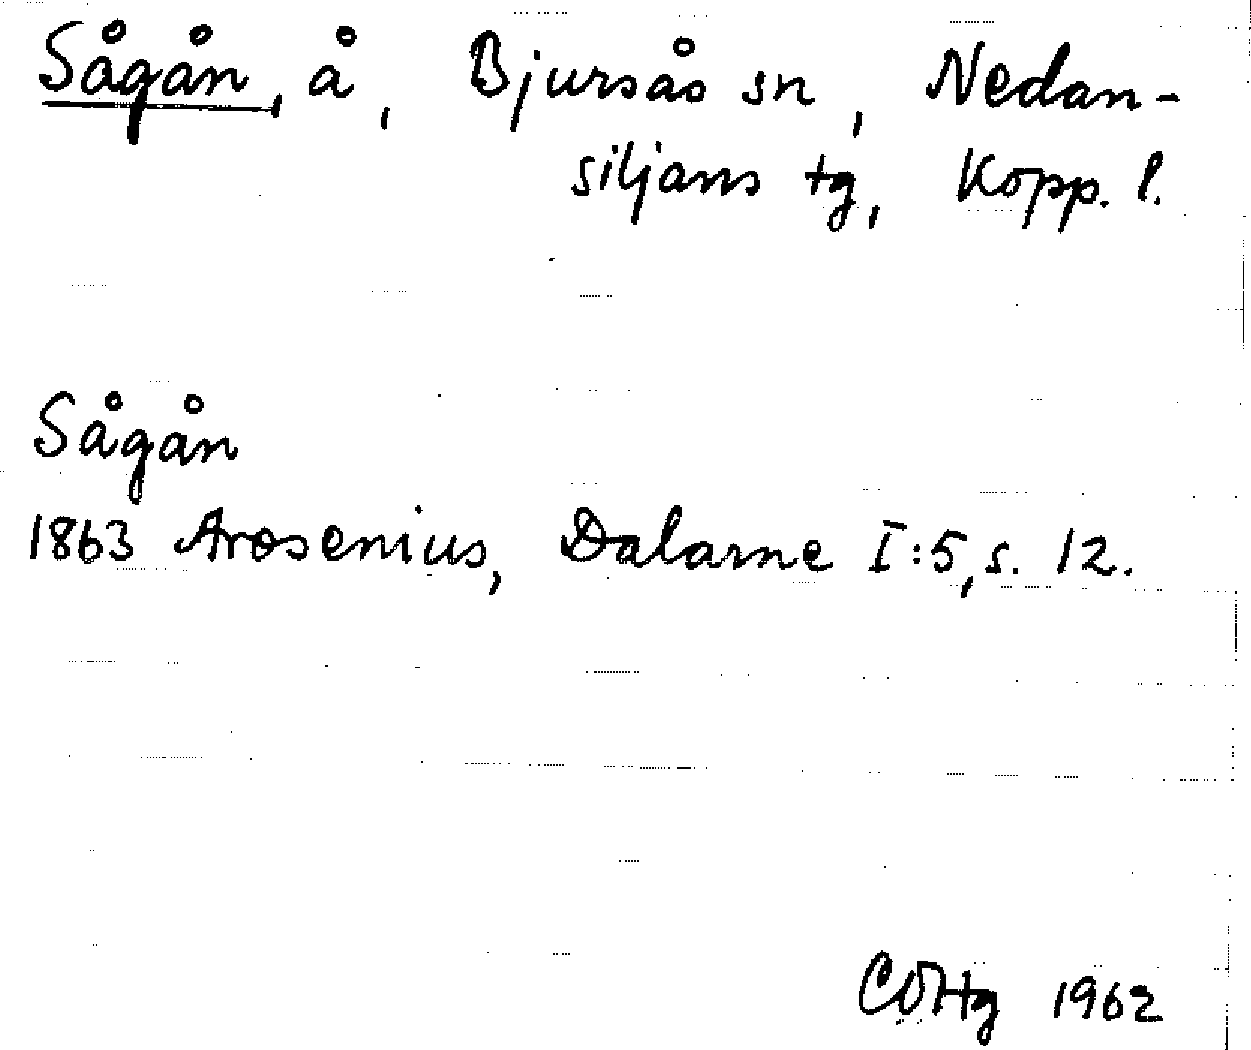 Sågån, å, Bjursås sn, Nedan-
siljans tg, Kopp. l.
Sågån
1863 Arosenius, Dalarne I:5, s. 12.
1962